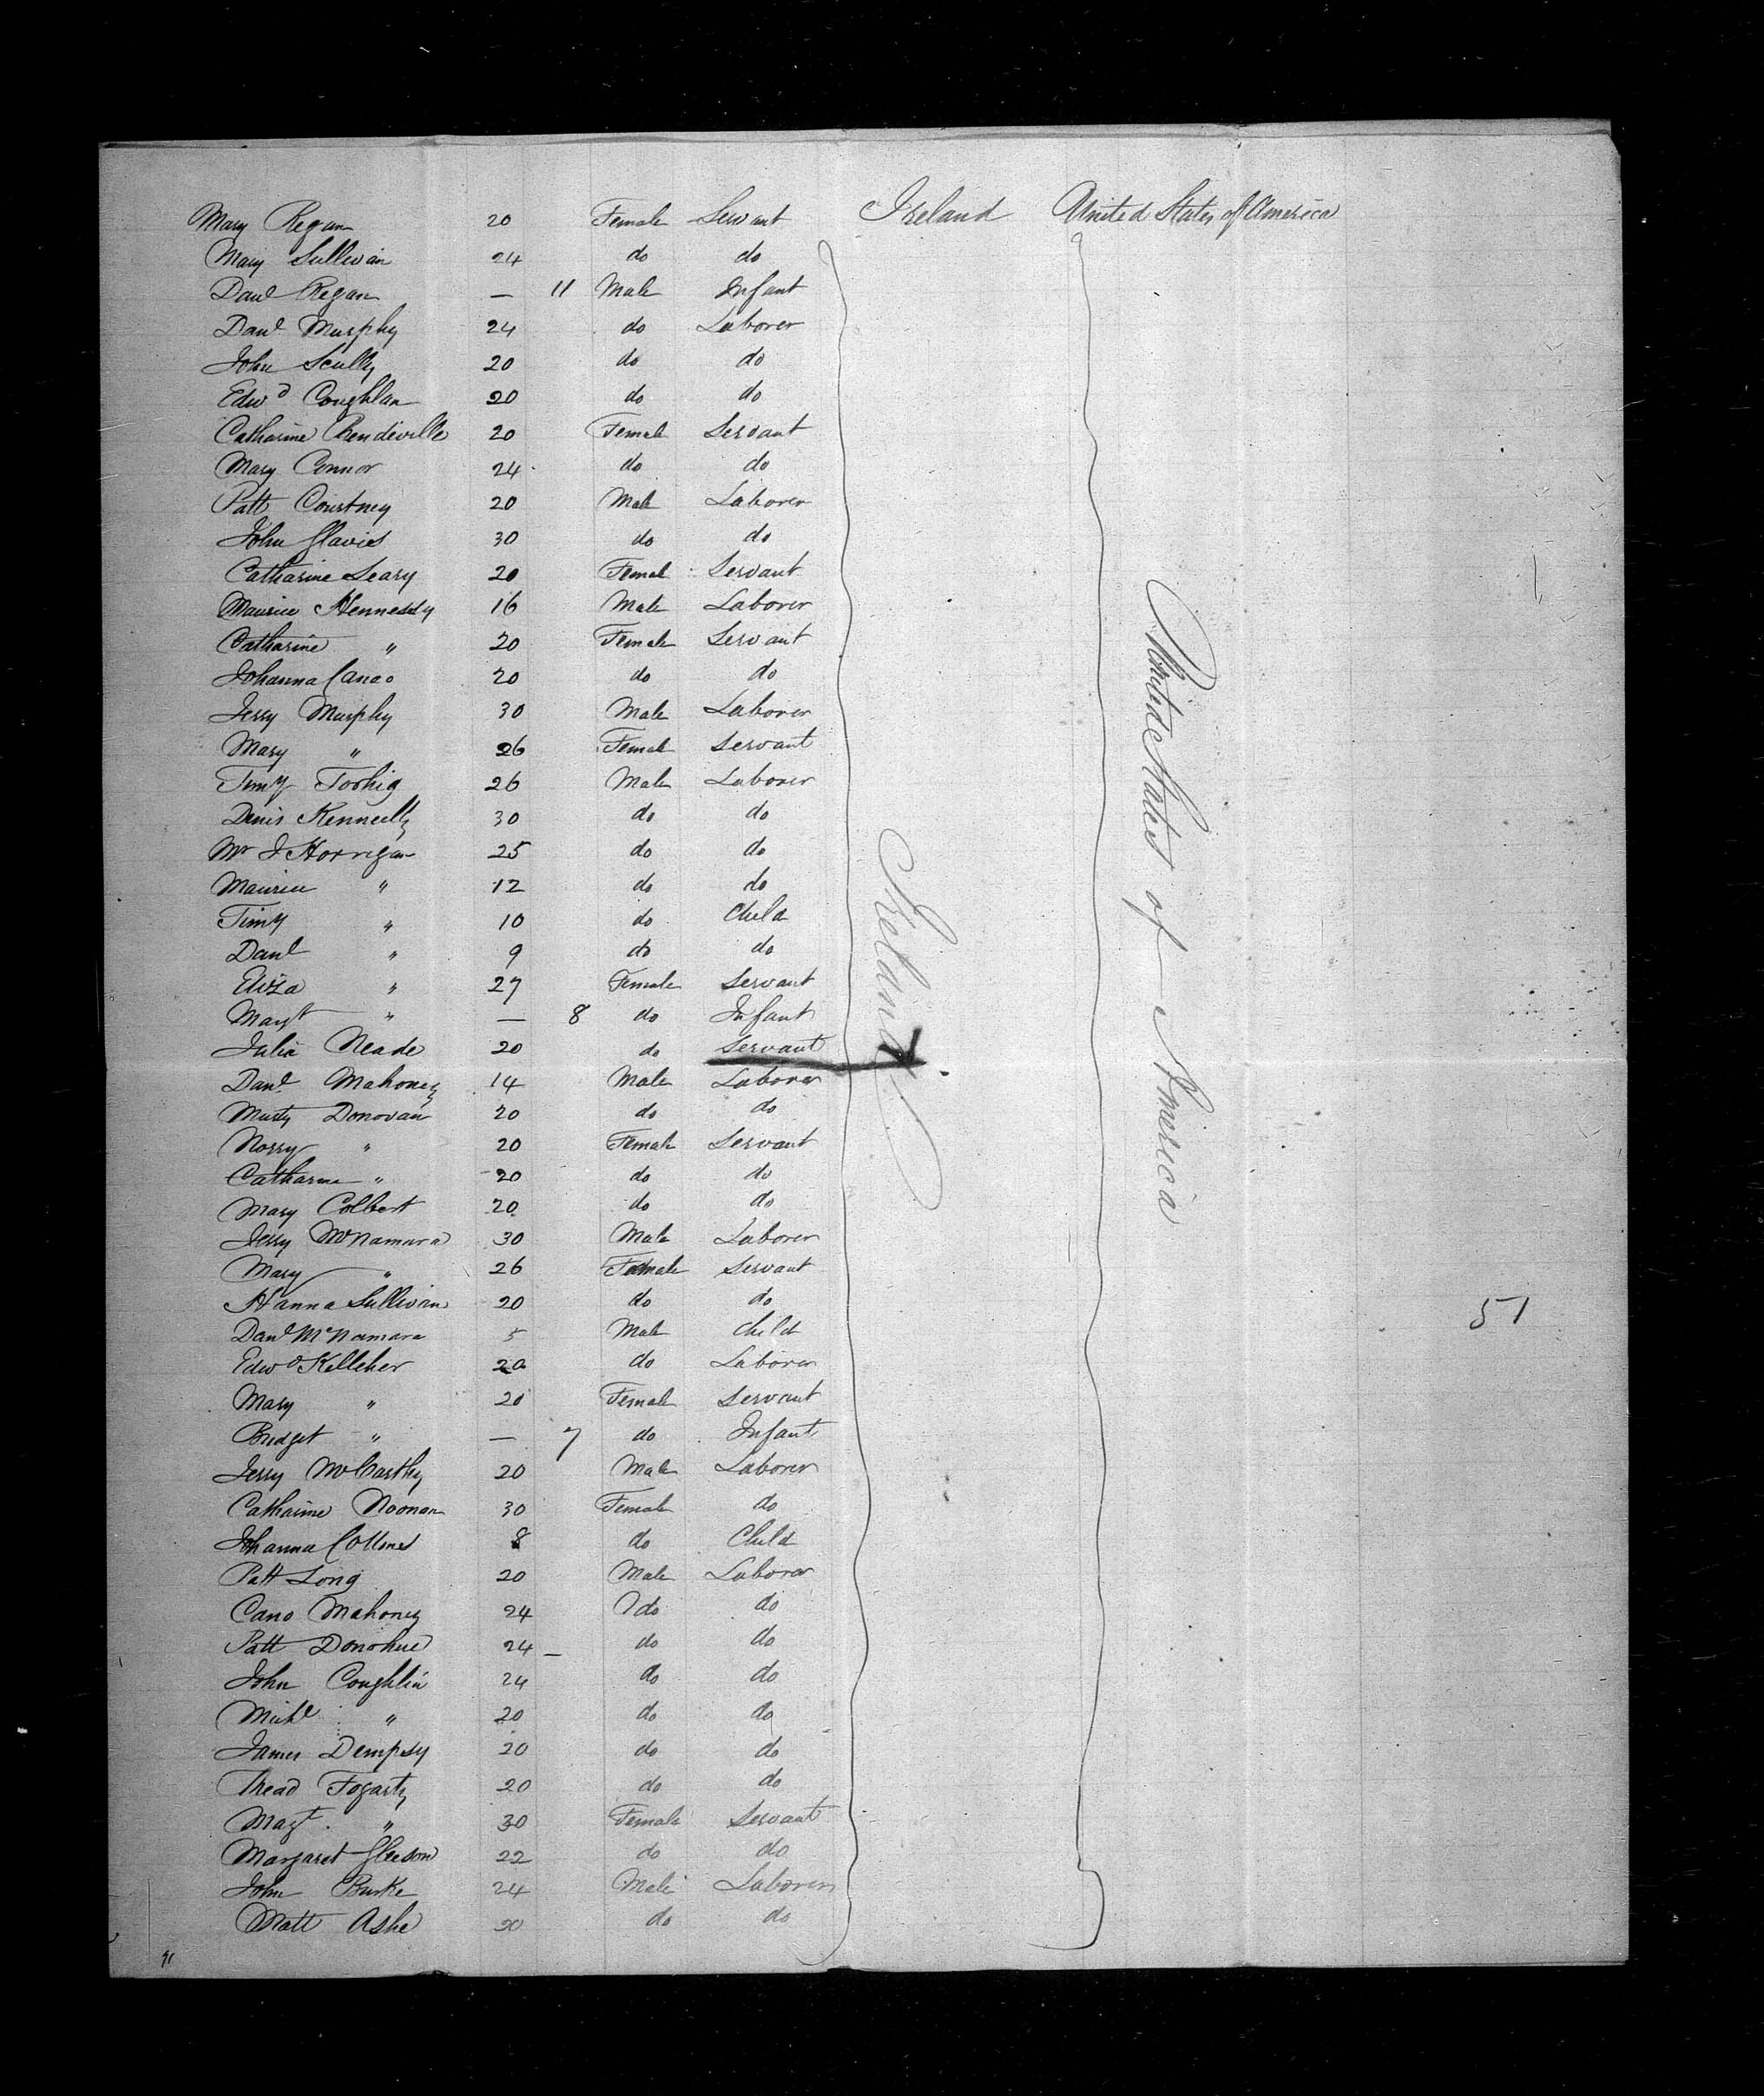 Mary Regan 20 Female Servant Ireland United States of America
Mary Sullivan 24 do do
Danl Regan — 11 Male Infant
Danl Murphy 24 do Laborer
John Scully 20 do do
Edwd Coughlan 20 do do
Catharine Rendeville 20 Female Servant
Mary Connor 24 do do
Patt Courtney 20 Male Laborer
John 30 do do
Catharine Leary 20 Female Servant
Maurice Hennessy 16 Male Laborer
Catharine " 20 Female Servant
Johanna 20 do do
Jerry Murphy 30 Male Laborer
Mary " 26 Female Servant
Timy 26 Male Laborer
Denis Kenneelly 30 do do
Mr J Horrigan 25 do do
Maurice " 12 do do
Timy " 10 do Child
Danl " 9 do do
Eliza " 27 Female Servant
Margt " — 8 do Infant
Julia Neade 20 do Servant
Danl Mahoney 14 Male Laborer
Donovan 20 do do
Norry " 20 Female Servant
Catharine " 20 do do
Mary Colbert 20 do do
Jerry McNamara 30 Male Laborer
Mary " 26 Female Servant
Hanna Sullivan 20 do do
Danl McNamara 5 Male Child
51
Edwd Kelleher 20 do Laborer
Mary " 20 Female Servant
Bridget " — 7 do Infant
Jerry McCarthy 20 Male Laborer
Catharine Noonan 30 Female do
Johanna Collins 8 do Child
Patt Long 20 Male Laborer
Mahoney 24 do do
Patt Donohue 24 — do do
John Coughlin 24 do do
Michl " 20 do do
James Dempsy 20 do do
Fogarty 20 do do
Magt. " 30 Female Servant
Margaret Gleeson 22 do do
John Burke 24 Male Laborer
Matt Ashe 20 do do
Ireland
United States of America